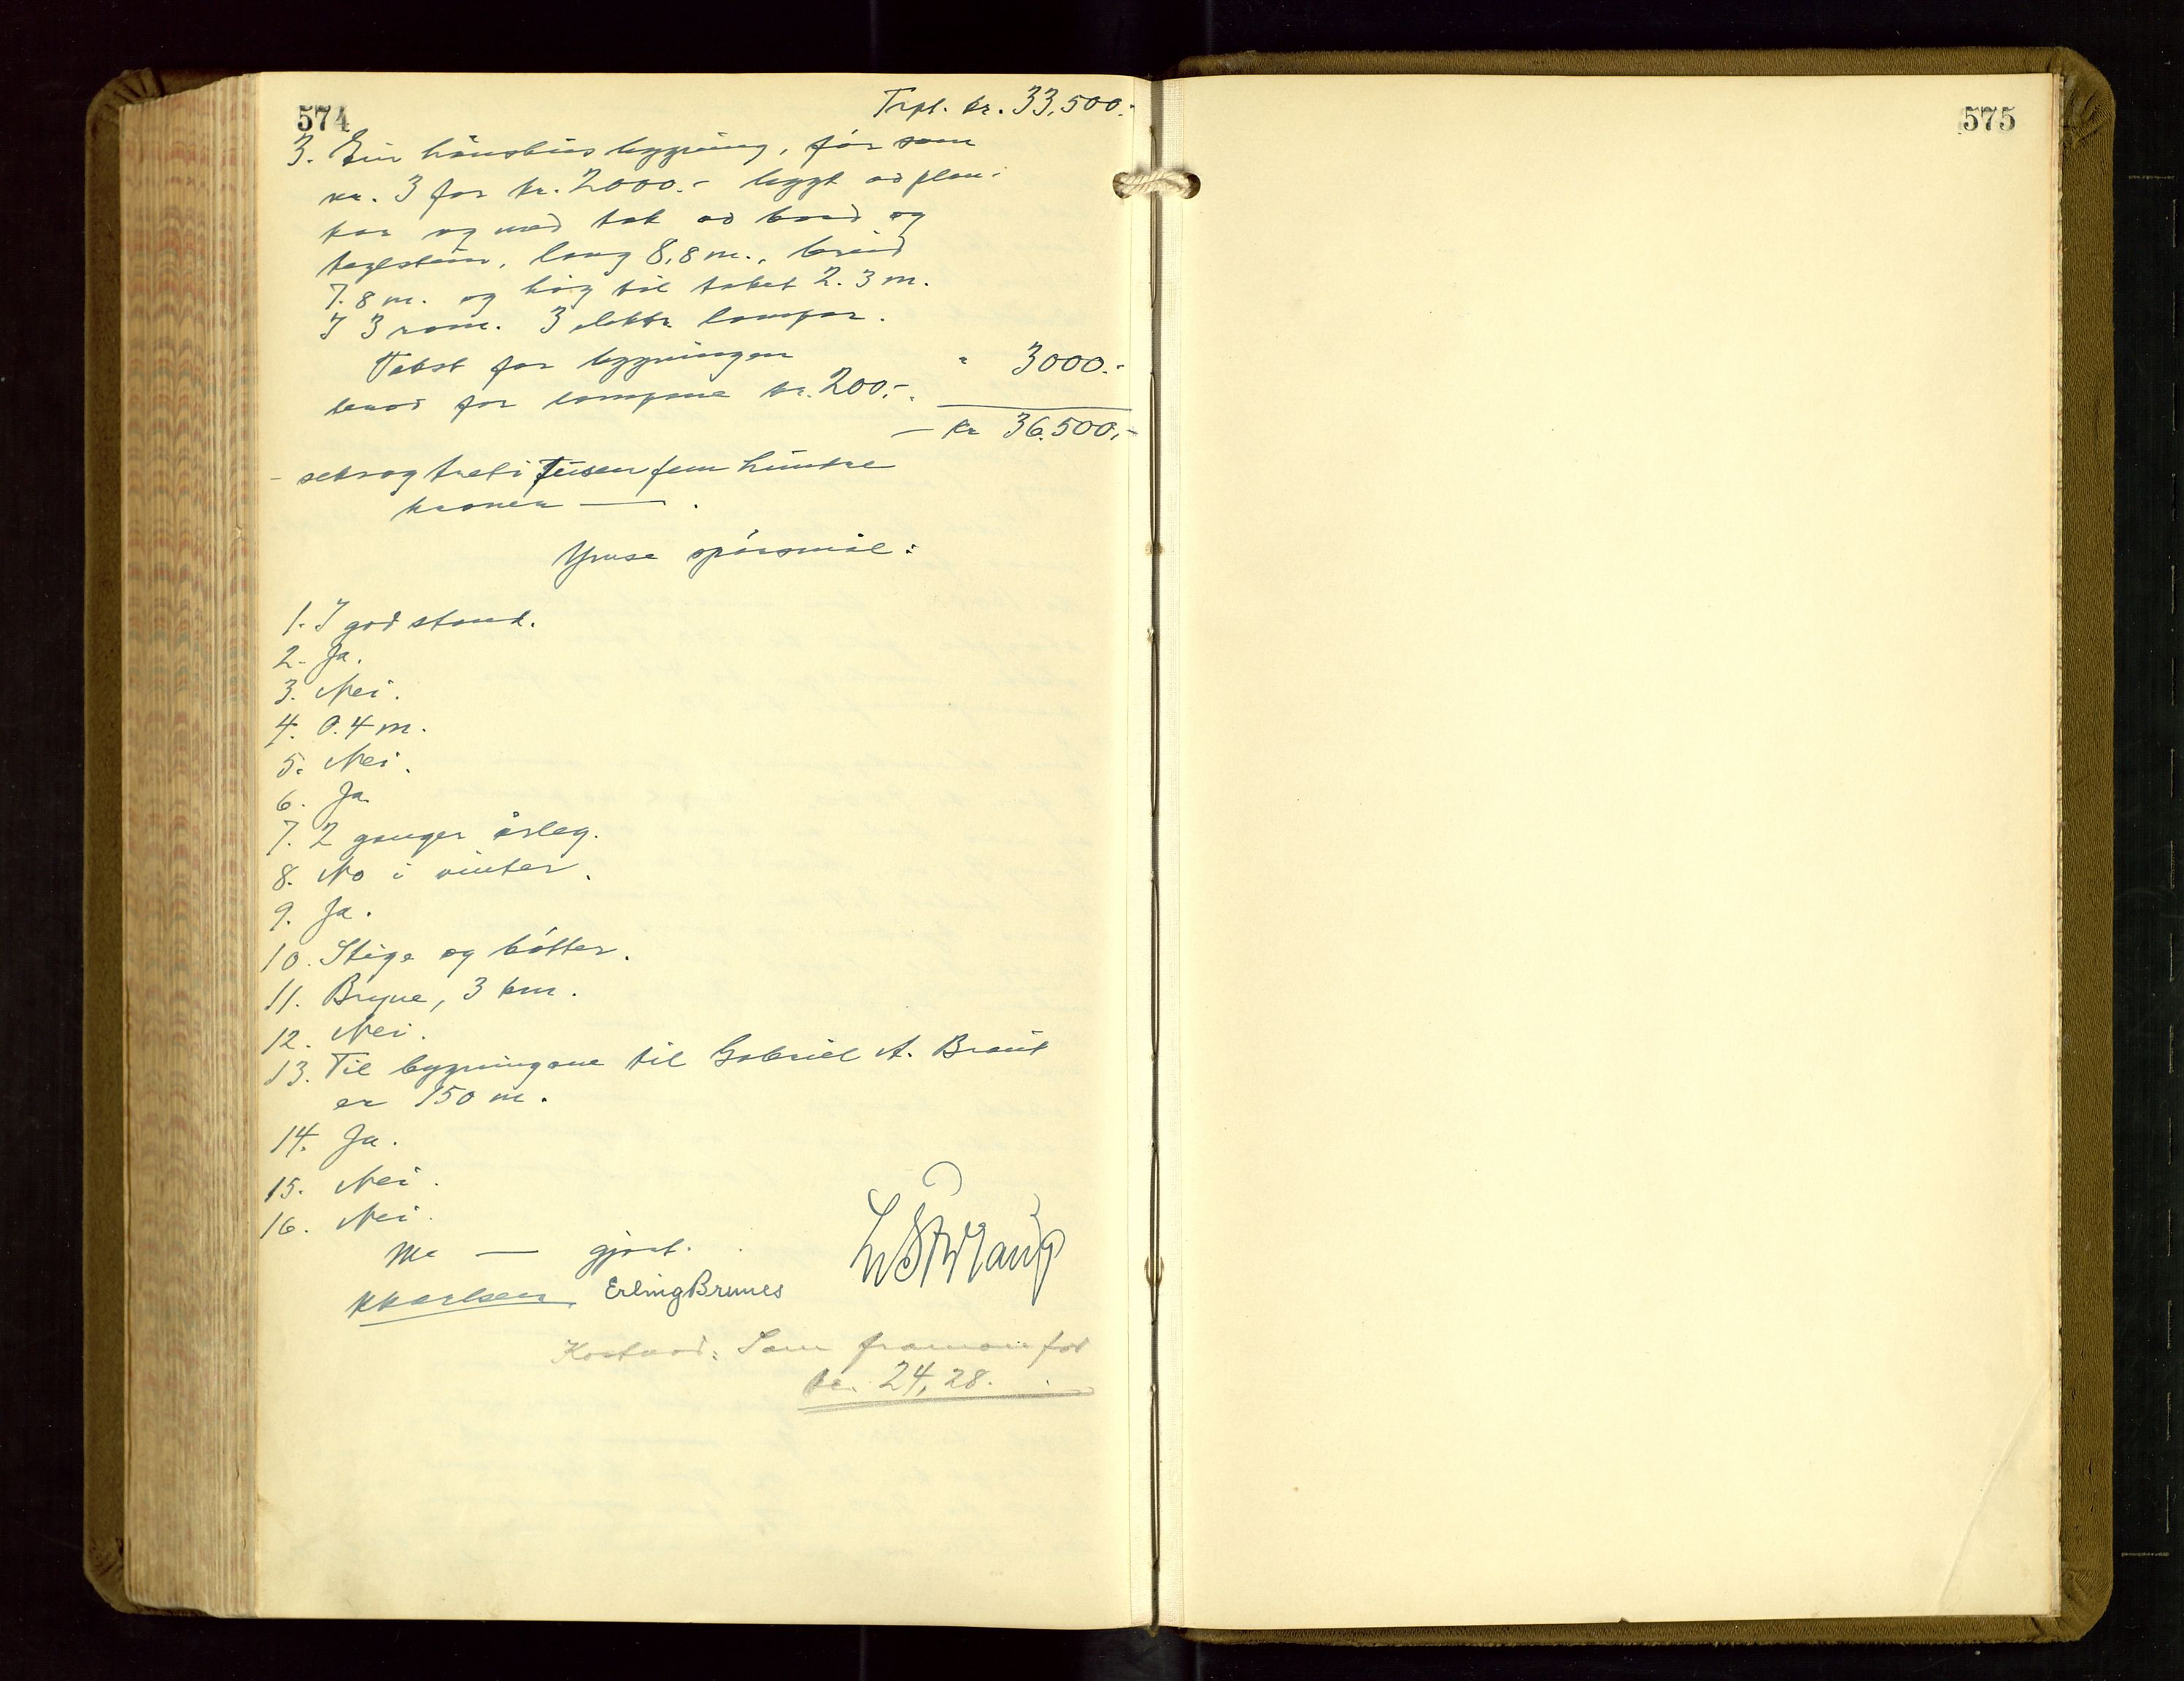 574
Trpt. kr. 33,500.-
3. Ein hönsehus bygning, för som
nr. 3 for kr. 2000.- bygt av plan-
kar og med tak av bord og
taglstein, lang 8,8 m., breid
7.8 m. og høg til taket 2.3 m.
I 3 rom. 3 elektr lampor.
Takst for bygningen " 3000.-
herav for lampone kr. 200,-.
— kr 36.500,-
- seksogtreti Tusen fem hundre
kroner — .
Ymse spörsmål:
1. I god stand.
2. Ja.
3. Nei.
4. 0.4 m.
5. Nei.
6. Ja
7. 2 ganger årleg.
8. No i vinter.
9. Ja.
10. Stige og bötter.
11. Bryne, 3 km.
12. Nei.
13. Til bygningane til Gabriel A. Braut
er 150 m.
14. Ja.
15. Nei.
16. Nei.
Me — gjort.
KKarlsen Erling Brunes
Kostnad: Som framanfor
kr. 24,28.
575